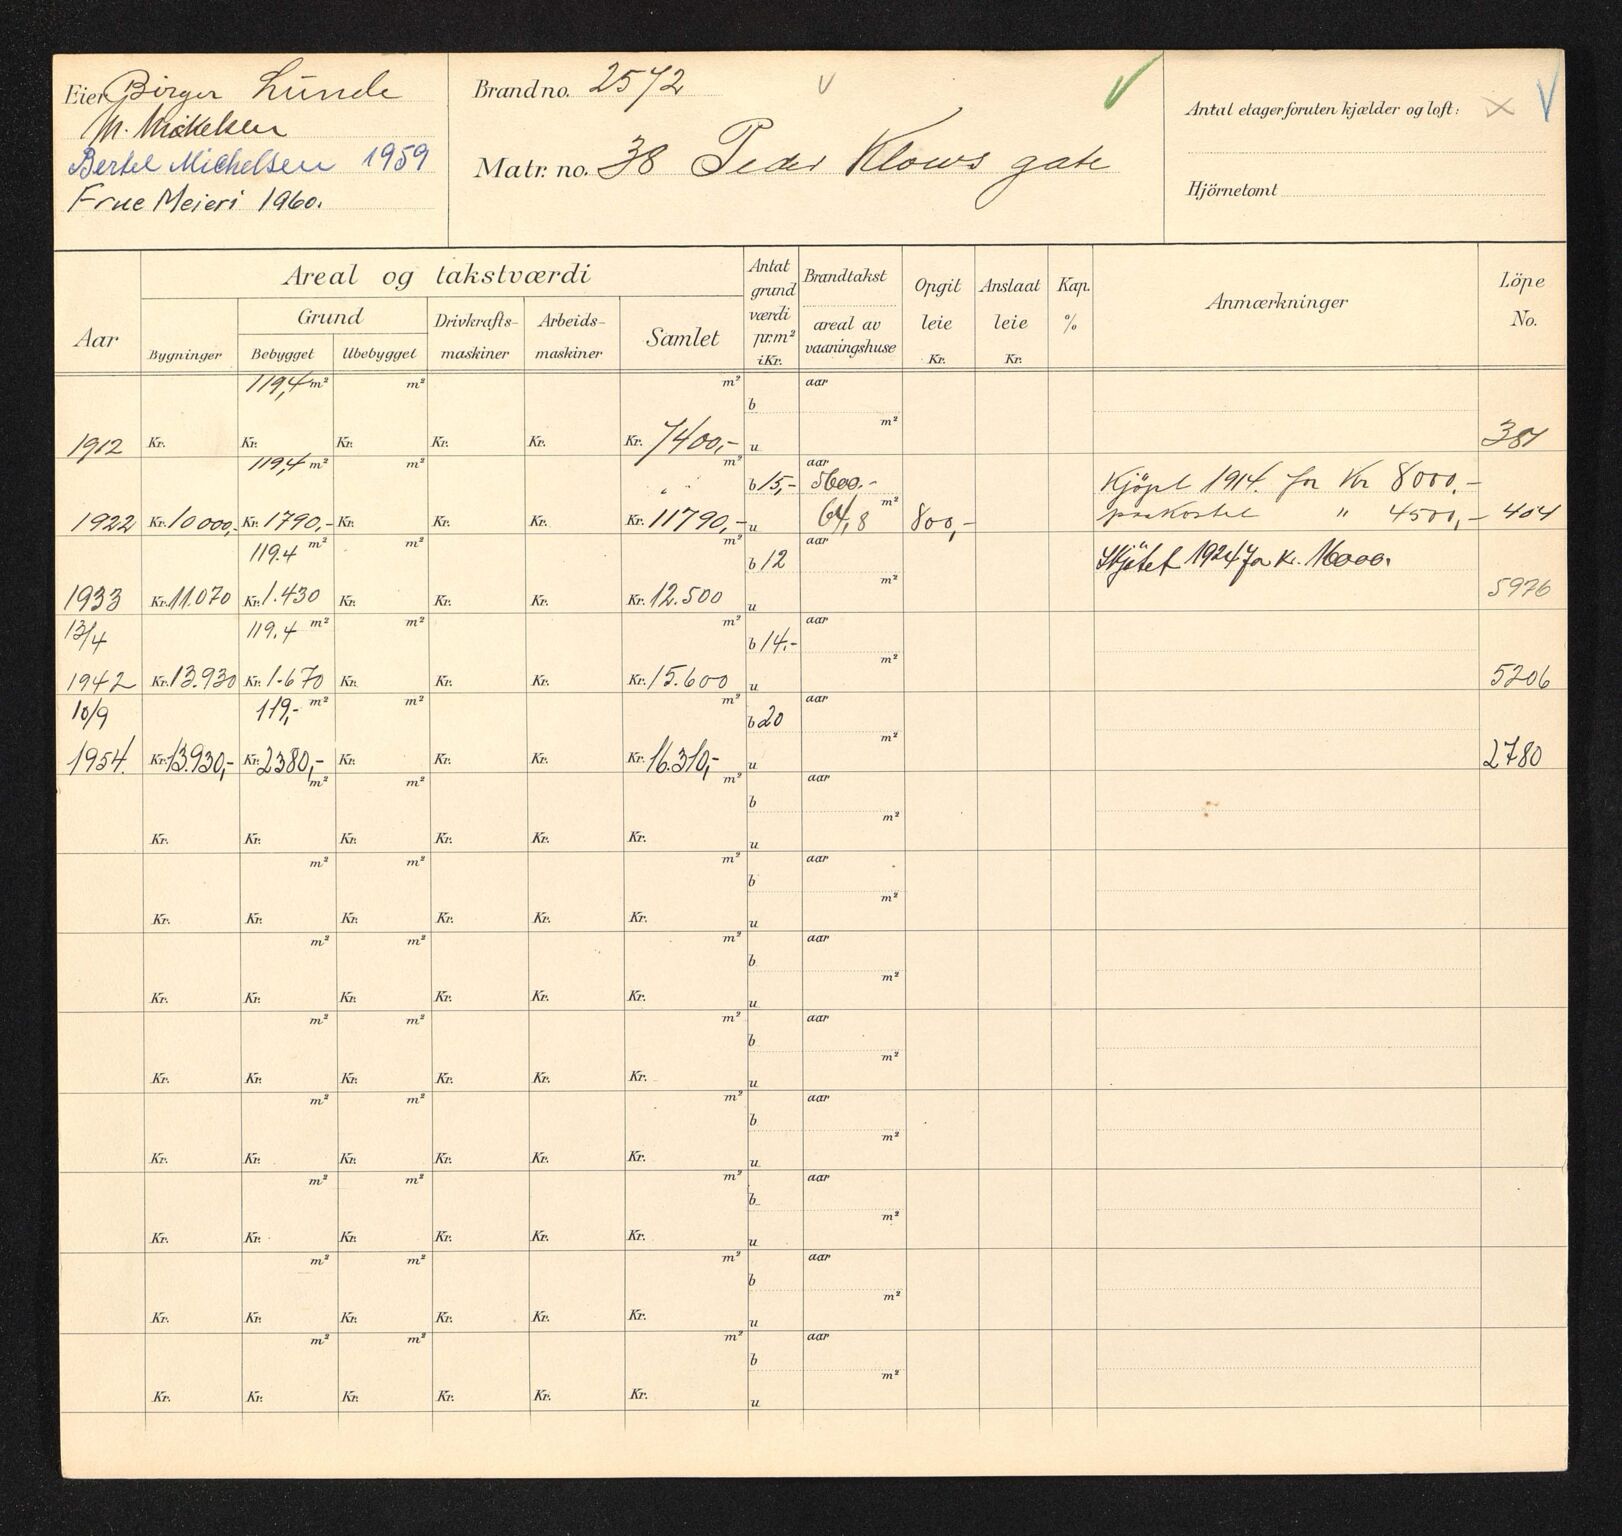 Eier Birger Lunde
M. Mickelsen
Bertel Michelsen 1959
Frue Meieri 1960.
Brand no. 2572
Matr. no. 38 Peder Klows gate
Antal etager foruten kjælder og loft: x
Hjörnetomt
Aar
Areal og takstværdi
Bygninger
Grund
Bebygget Ubebygget
Drivkrafts-
maskiner
Arbeids-
maskiner
Samlet
Antat
grund
værdi
pr. m²
i Kr.
Brandtakst
areal av
vaaningshuse
Opgit
leie
Kr.
Anslaat
leie
Kr.
Kap.
%
Anmærkninger
Löpe
No.
119,4 m² m² m² aar
b
m²
1912 Kr. Kr. Kr. Kr. Kr. Kr. 7400,- u 381
119,4 m² m² m² aar
„ „ b 15,- 5600.- Kjöpt 1914. for Kr 8000,-
m²
1922 Kr. 10000,- Kr. 1790,- Kr. Kr. Kr. Kr. 11790,- u 64,8 800,- paakostet " 4500,- 404
119.4 m² m² m² aar
b 12 Skjötet 1924 for Kr. 16000.
m²
1933 Kr. 11.070 Kr. 1.430 Kr. Kr. Kr. Kr. 12.500 u 5976
13/4 119.4 m² m² m² aar
b 14.-
m²
1942 Kr. 13.930 Kr. 1.670 Kr. Kr. Kr. Kr. 15.600 u 5206
10/9 119,- m² m² m² aar
b 20
m²
1954. Kr. 13.930,- Kr. 2380,- Kr. Kr. Kr. Kr. 16.310,- u 2780
m² m² m² aar
b
m²
Kr. Kr. Kr. Kr. Kr. Kr. u
m² m² m² aar
b
m²
Kr. Kr. Kr. Kr. Kr. Kr. u
m² m² m² aar
b
m²
Kr. Kr. Kr. Kr. Kr. Kr. u
m² m² m² aar
b
m²
Kr. Kr. Kr. Kr. Kr. Kr. u
m² m² m² aar
b
m²
Kr. Kr. Kr. Kr. Kr. Kr. u
m² m² m² aar
b
m²
Kr. Kr. Kr. Kr. Kr. Kr. u
m² m² m² aar
b
m²
Kr. Kr. Kr. Kr. Kr. Kr. u
m² m² m² aar
b
m²
Kr. Kr. Kr. Kr. Kr. Kr. u